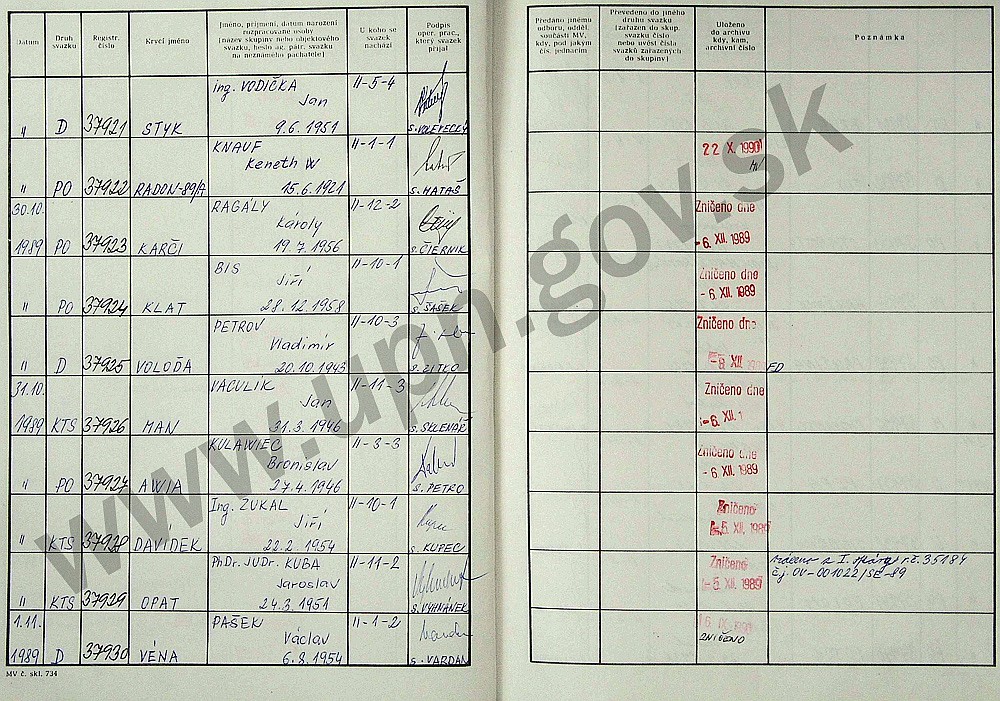 Datum
Druh svazku
Registr. číslo
Krycí jméno
Jméno, příjmení, datum narození
rozpracované osoby
(název skupiny nebo objektového
svazku, heslo ag. pátr. svazku
na neznámého pachatele)
U koho se
svazek
nachází
Podpis
oper. prac.,
který svazek
přijal
Předáno jinému
odboru, odděl.
součásti MV,
kdy, pod jakým
čís. jednacím
Převedeno do jiného
druhu svazku
(zařazen do skup.
svazku číslo
nebo uvést čísla
svazků zařazených
do skupiny)
Uloženo
do archivu
kdy, kam,
archivní číslo
Poznámka
ing. VODIČKA II-5-4
Jan
" D 37921 STYK 9.6.1951 S. VOLEVECKÝ
KNAUF II-1-1 22 X. 1990
Keneth W
" PO 37922 RADON-89/A 15.6.1921 S. MATAŠ
30.10. RAGÁLY II-12-2 Zničeno dne
Károly
1989 PO 37923 KARČI 19.7.1956 S. ČIERNIK -6. XII. 1989
BIS II-10-1 Zničeno dne
Jiří
" PO 37924 KLAT 28.12.1958 S. ŠAŠEK -6. XII. 1989
PETROV II-10-3 Zničeno dne
Vladimír
" D 37925 VOLOĎA 20.10.1943 S. ZITKO XII. FD
31.10. VACULÍK II-11-3 Zničeno dne
Jan
1989 KTS 37926 MAN 31.3.1946 S. SKLENÁŘ -6. XII. 1
KULAWIEC II-3-3 Zničeno dne
Bronislav
" PO 37927 AWIA 27.4.1946 S. PETRO -6. XII. 1989
Ing. ZUKAL II-10-1 Zničeno
Jiří
" KTS 37928 DAVÍDEK 22.2.1954 S. KUPEC 5. XII. 1989
PhDr. JUDr. KUBA II-11-2 Zničeno
Jaroslav
" KTS 37929 OPAT 24.3.1951 S. VYHNÁNEK -5. XII. 1989
z I. správy r.č. 35184
č.j. OV-001022/SE-89
1.11. PAŠEK II-1-2
Václav
1989 D 37930 VÉNA 6.8.1954 S. VARDAN ZNIČENO
MV č. skl. 734
www.upn.gov.sk